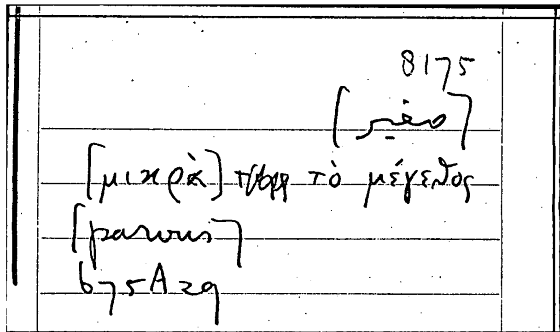 8175
[μικρὰ] τὸ μέγεθος
[parvus]
675A29